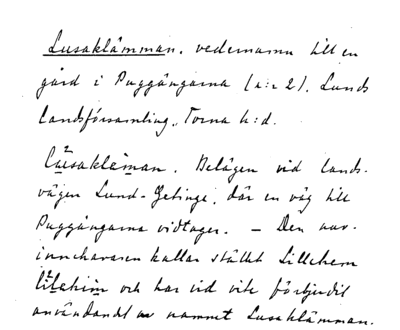 Lusaklämman. vedernamn till en
gård i Puggängarna (a:r 2). Lunds
landsförsamling, Torna h:d.
Belägen vid lands-
vägen Lund-Getinge, där en väg till
Puggängarna vidtager. – Den nuv.
innehavaren kallar stället Lillehem
och har vid vite förbjudit
användandet av namnet Lusaklämman.